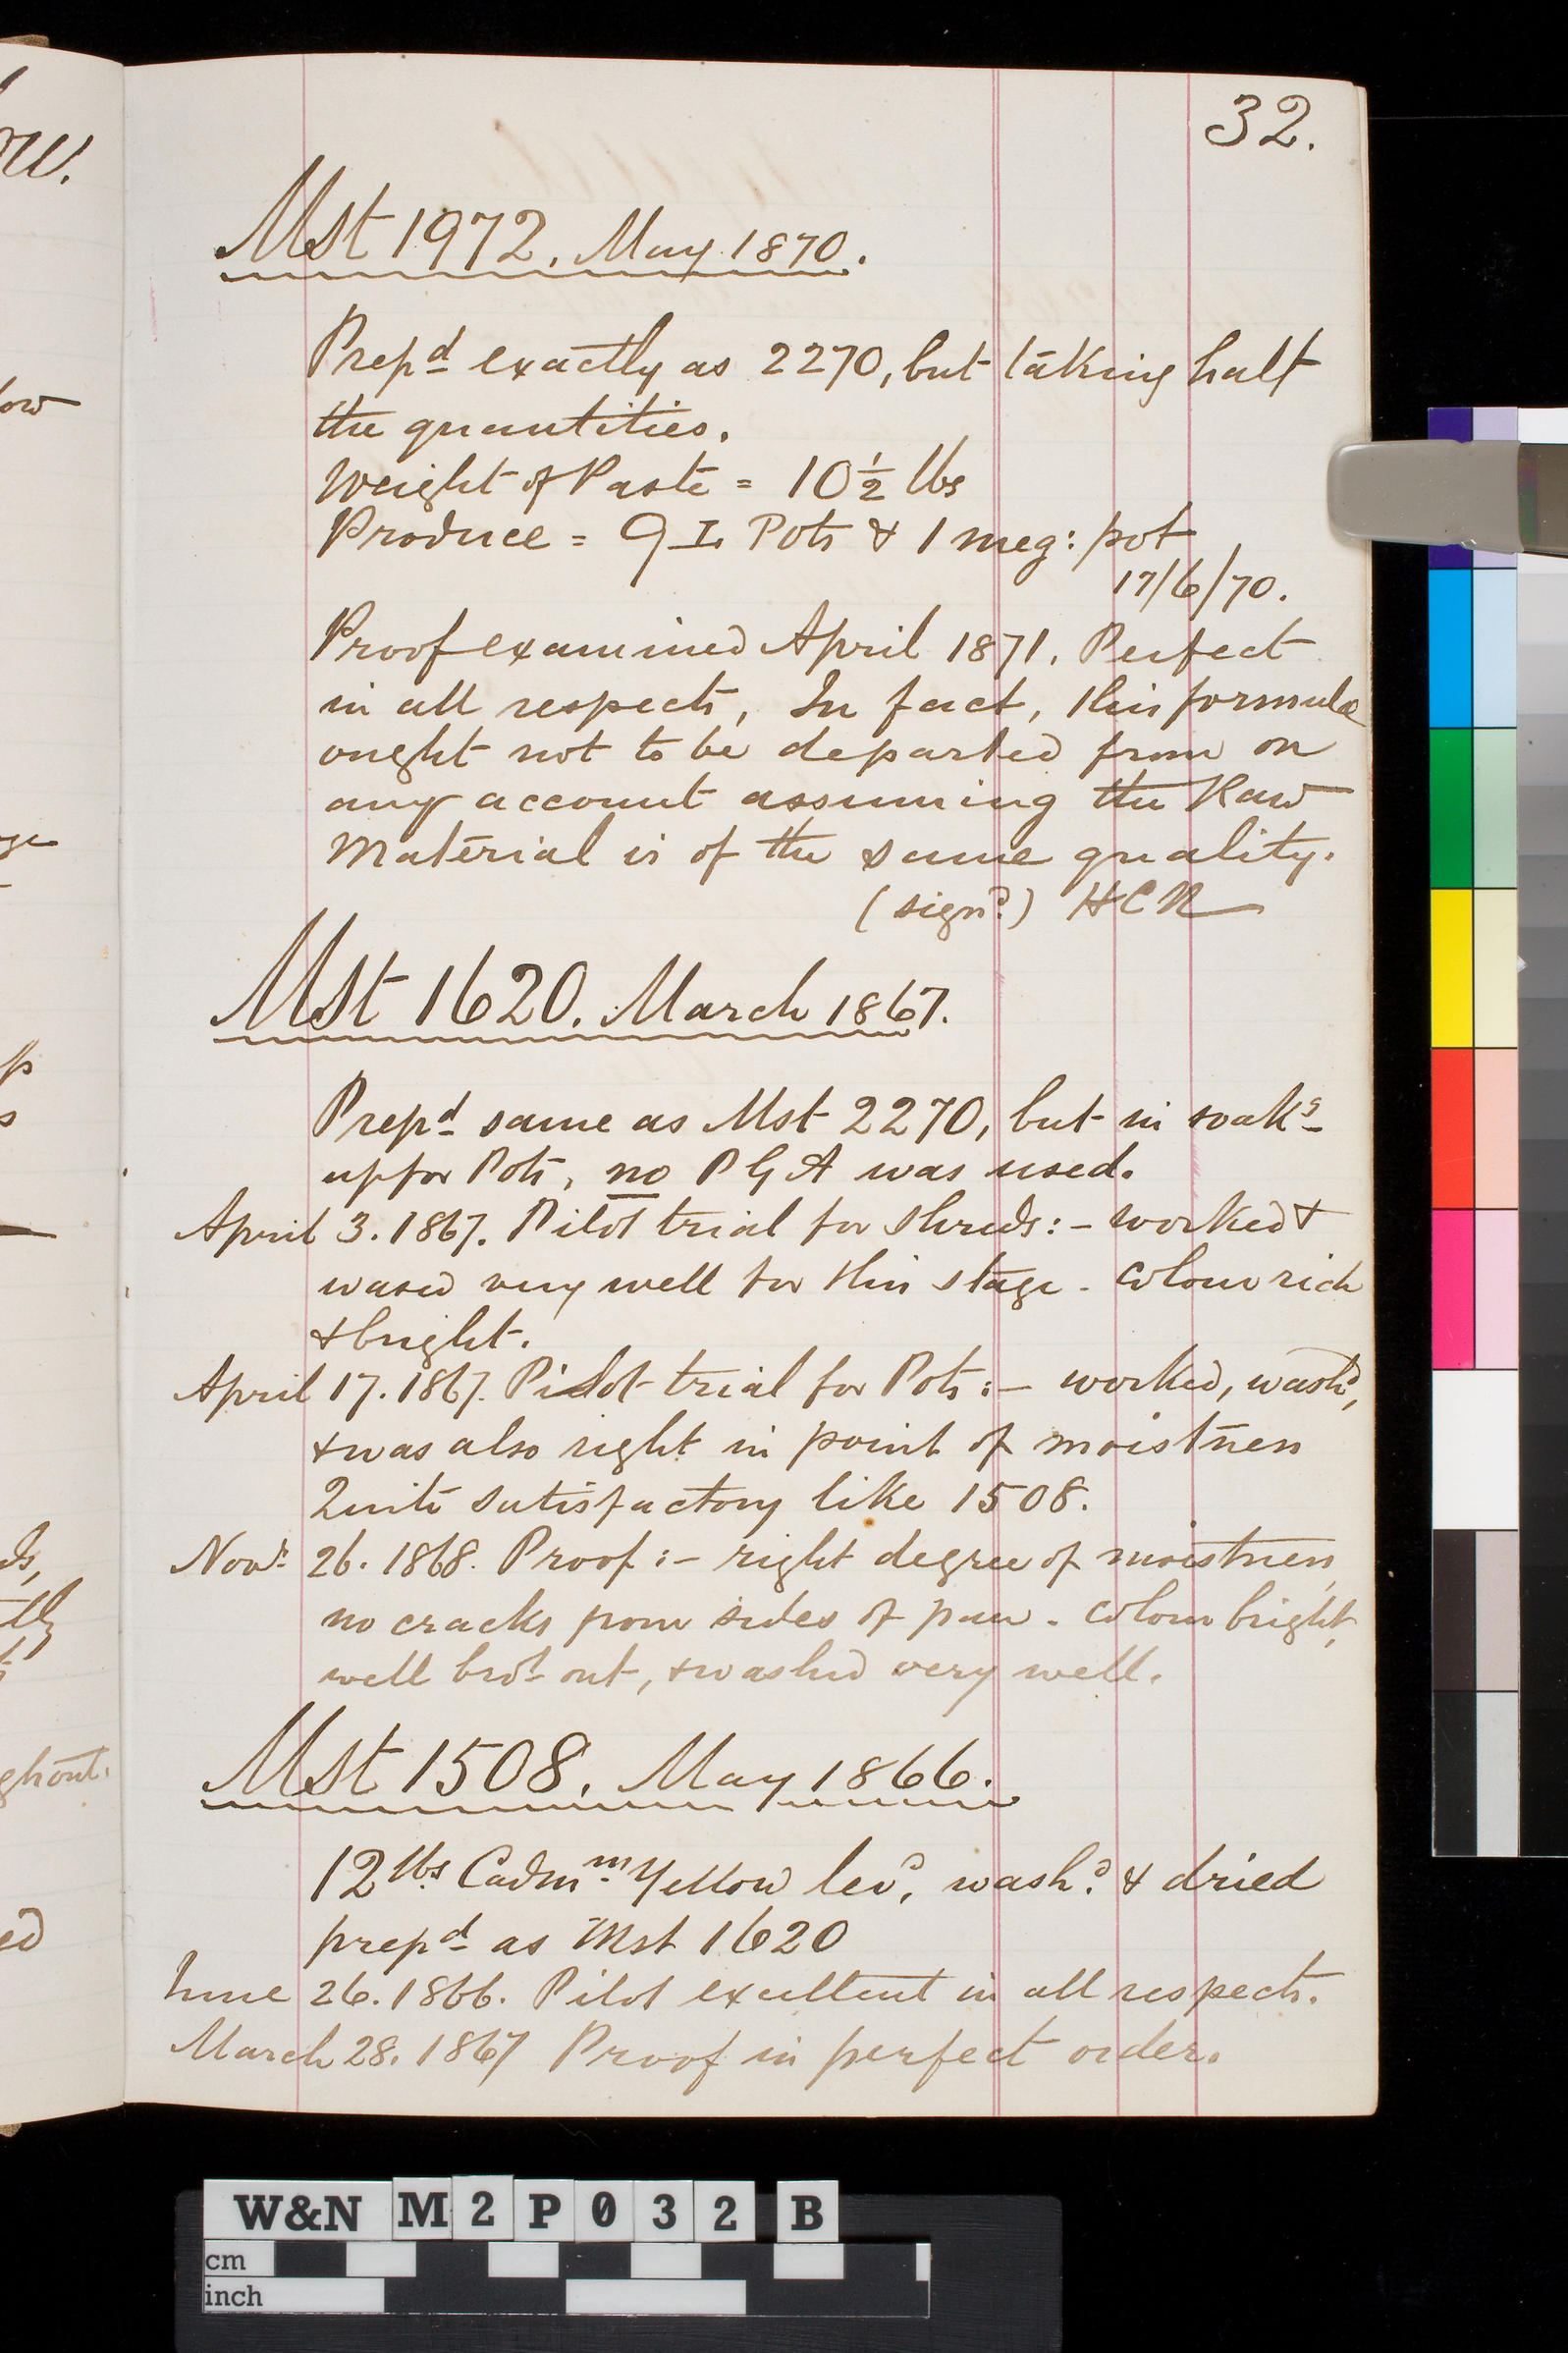 32.
Mst 1972. May 1870.
Prepd exactly as 2270, but taking half
the quantities.
Weight of Paste = 10 1/2 lbs
Produce = 9 I. Pots & 1 meg: pot
17/6/70.
Proof examined April 1871. Perfect
in all respects, In fact, this formula
ought not to be departed from on
any account assuming the Raw
Material is of the same quality.
(signd.) HCN
Mst 1620. March 1867.
Prepd same as Mst 2270, but in soakg
up for Pots, no P G A was used.
April 3. 1867. Pilot trial for shreds:- worked &
wased very well for this stage - Colour rich
& bright.
April 17. 1867. Pilot trial for Pots:- worked, washd,
& was also right in point of moistness
Quite satisfactory like 1508.
Novr. 26. 1868. Proof:- right degree of moistness,
no cracks from sides of pan - Colour bright,
well brot out, & washed very well.
Mst 1508. May 1866.
12 lbs. Cadmm. Yellow levd, washd. & dried
prepd as Mst 1620
June 26. 1866. Pilot excellent in all respects.
March 28. 1867 Proof in perfect order.
W&N M 2 P 0 3 2 B
cm
inch